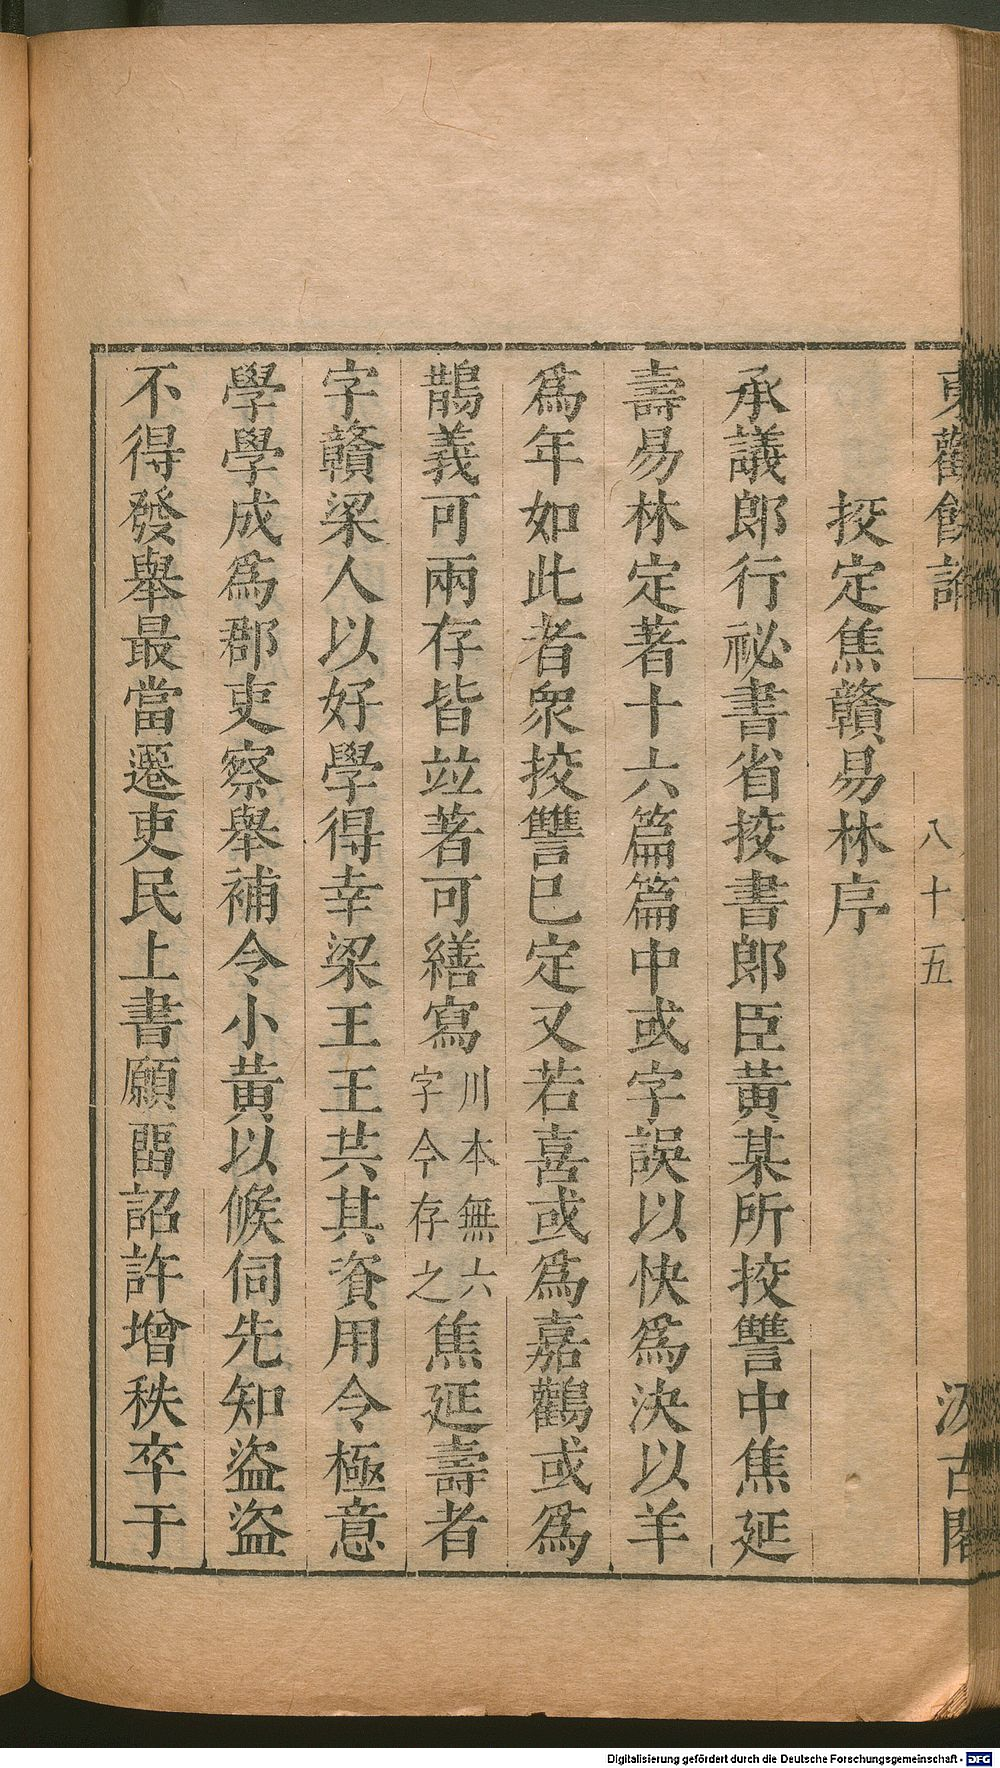 東觀餘論
八十五
汲古閣
挍定焦贛易林序
承議郎行祕書省挍書郎臣黃某所挍讐中焦延
壽易林定著十六篇篇中或字誤以快爲決以羊
爲年如此者衆挍讐已定又若喜或爲嘉鸛或爲
鵲義可兩存皆竝著可繕寫川本無六字今存之焦延壽者
字贛梁人以好學得幸梁王王共其資用令極意
學學成爲郡吏察舉補令小黃以候伺先知盜盜
不得發舉最當遷吏民上書願畱詔許增秩卒于
Digitalisierung gefördert durch die Deutsche Forschungsgemeinschaft - DFG